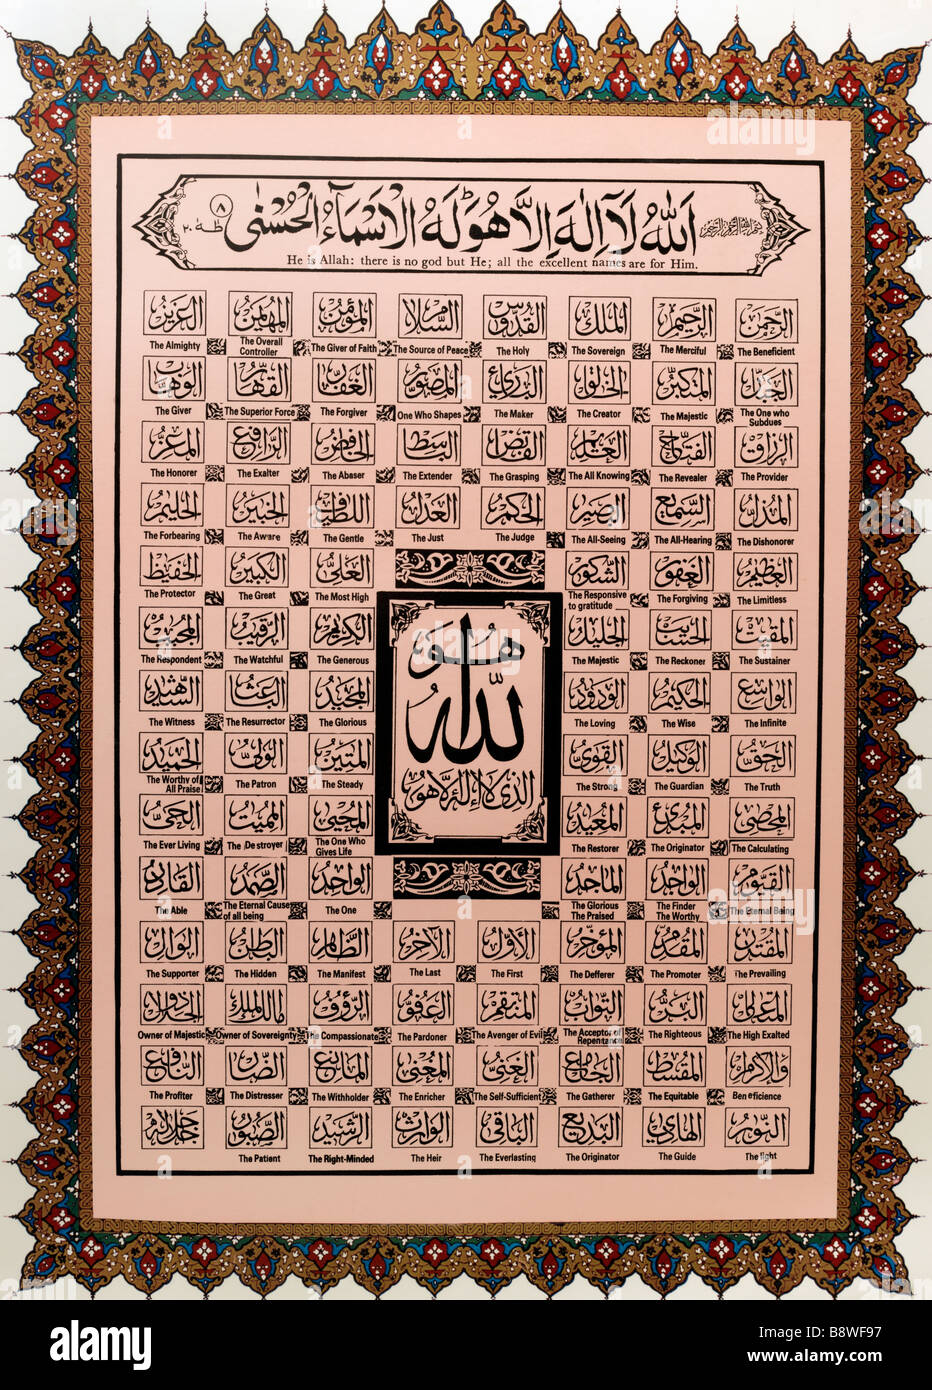 بسم الله الرحمن الرحيم
الله لآ إله إلا هو له الأسمآء الحسنى طه ٨ ٢٠
He is Allah: there is no god but He; all the excellent names are for Him.
الرحمن الرحيم الملك القدوس السلام المؤمن المهيمن العزيز
The Beneficent The Merciful The Sovereign The Holy The Source of Peace The Giver of Faith The Overall Controller The Almighty
الجبار المتكبر الخالق البارئ المصور الغفار القهار الوهاب
The One who Subdues The Majestic The Creator The Maker One Who Shapes The Forgiver The Superior Force The Giver
الرزاق الفتاح العليم القابض الباسط الخافض الرافع المعز
The Provider The Revealer The All Knowing The Grasping The Extender The Abaser The Exalter The Honorer
المذل السميع البصير الحكم العدل اللطيف الخبير الحليم
The Dishonorer The All-Hearing The All-Seeing The Judge The Just The Gentle The Aware The Forbearing
العظيم الغفور الشكور العلي الكبير الحفيظ
The Limitless The Forgiving The Responsive to gratitude The Most High The Great The Protector
المقيت الحسيب الجليل الكريم الرقيب المجيب
The Sustainer The Reckoner The Majestic The Generous The Watchful The Respondent
الواسع الحكيم الودود المجيد الباعث الشهيد
The Infinite The Wise The Loving The Glorious The Resurrector The Witness
الحق الوكيل القوي المتين الولي الحميد
The Truth The Guardian The Strong The Steady The Patron The Worthy of All Praise
المحصي المبدئ المعيد المحيي المميت الحي
The Calculating The Originator The Restorer The One Who Gives Life The Destroyer The Ever Living
القيوم الواجد الماجد الواحد الصمد القادر
The Eternal Being The Finder The Worthy The Glorious The Praised The One The Eternal Cause of all being The Able
هو
الله
الذي لا إله إلا هو
المقتدر المقدم المؤخر الأول الآخر الظاهر الباطن الوالي
The Prevailing The Promoter The Defferer The First The Last The Manifest The Hidden The Supporter
المتعالي البر التواب المنتقم العفو الرؤف مالك الملك ذوالجلال
The High Exalted The Righteous The Acceptor of Repentance The Avenger of Evil The Pardoner The Compassionate Owner of Sovereignty Owner of Majestic
والإكرام المقسط الجامع الغني المغني المانع الضار النافع
Ben eficience The Equitable The Gatherer The Self-Sufficient The Enricher The Withholder The Distresser The Profiter
النور الهادي البديع الباقي الوارث الرشيد الصبور جل جلاله
The light The Guide The Originator The Everlasting The Heir The Right-Minded The Patient
alamy
Image ID: B8WF97
www.alamy.com